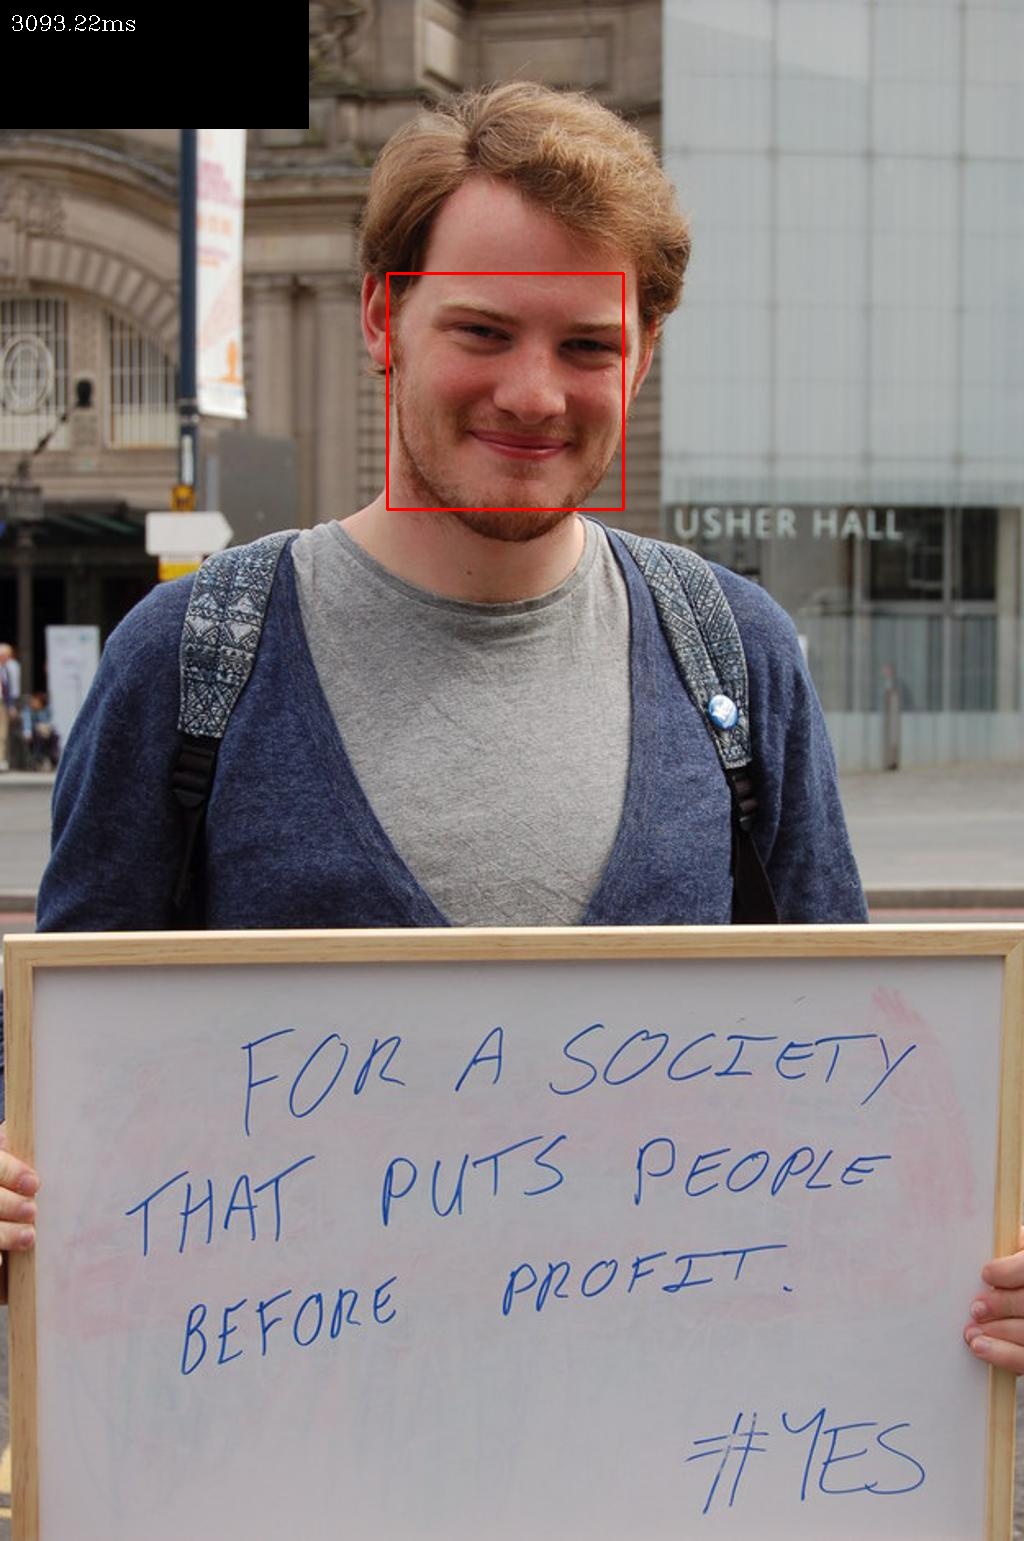 3093.22ms
USHER HALL
FOR A SOCIETY
THAT PUTS PEOPLE
BEFORE PROFIT.
#YES